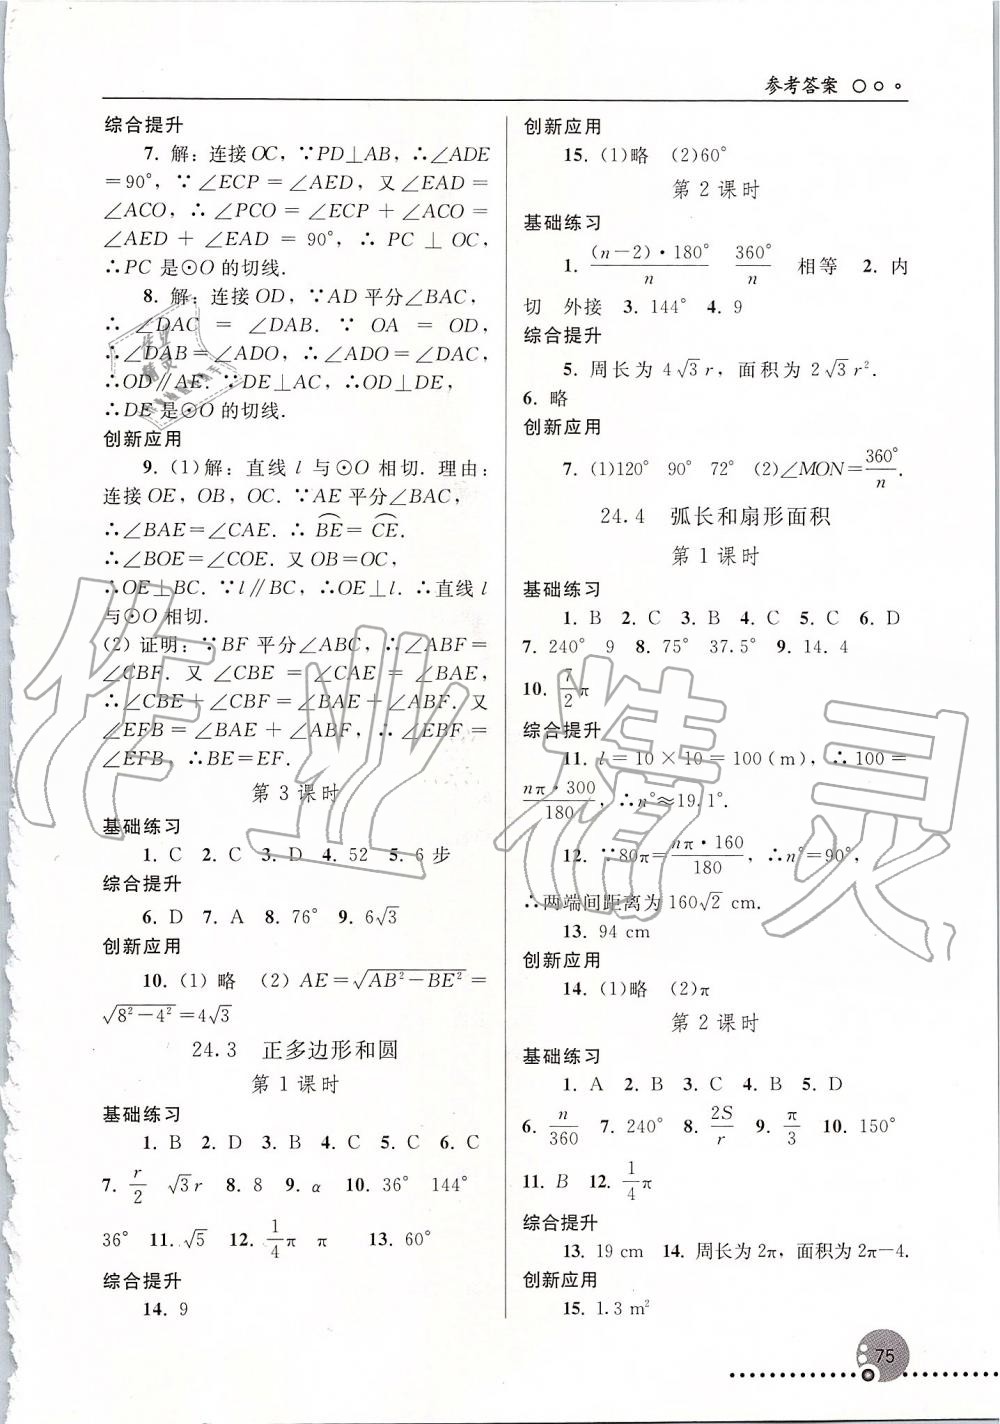 参考答案
综合提升
7. 解：连接OC，∵PD⊥AB，∴∠ADE
＝90°，∵∠ECP＝∠AED，又∠EAD＝
∠ACO，∴∠PCO＝∠ECP＋∠ACO＝
∠AED＋∠EAD＝90°，∴PC⊥OC，
∴PC是⊙O的切线.
8. 解：连接OD，∵AD平分∠BAC，
∴∠DAC＝∠DAB. ∵OA＝OD，
∴∠DAB＝∠ADO，∴∠DAC＝∠ADO，
∴OD∥AE. ∵DE⊥AC，∴OD⊥DE，
∴DE是⊙O的切线.
创新应用
9. (1)解：直线l与⊙O相切. 理由：
连接OE，OB，OC. ∵AE平分∠BAC，
∴∠BAE＝∠CAE. ∴⌒BE＝⌒CE.
∴∠BOE＝∠COE. 又OB＝OC，
∴OE⊥BC. ∵l∥BC，∴OE⊥l. ∴直线l
与⊙O相切.
(2) 证明：∵BF平分∠ABC，∴∠ABF＝
∠CBF. 又∠CBE＝∠CAE＝∠BAE，
∴∠CBE＋∠CBF＝∠BAE＋∠ABF. 又
∠EFB＝∠BAE＋∠ABF，∴∠EBF＝
∠EFB，∴BE＝EF.
第3课时
基础练习
1. C 2. C 3. D 4. 52 5. 6步
综合提升
6. D 7. A 8. 76° 9. 6√3
创新应用
10. (1) 略 (2) AE＝√(AB²－BE²)＝
√(8²－4²)＝4√3
24.3 正多边形和圆
第1课时
基础练习
1. B 2. D 3. B 4. C 5. C 6. C
7. r/2 √3r 8. 8 9. α 10. 36° 144°
36° 11. √5 12. 1/4π π 13. 60°
综合提升
14. 9
创新应用
15. (1)略 (2)60°
第2课时
基础练习
1. (n－2)·180°/n 360°/n 相等 2. 内
切 外接 3. 144° 4. 9
综合提升
5. 周长为4√3r，面积为2√3r².
6. 略
创新应用
7. (1)120° 90° 72° (2)∠MON＝360°/n.
24.4 弧长和扇形面积
第1课时
基础练习
1. B 2. C 3. B 4. C 5. C 6. D
7. 240° 9 8. 75° 37.5° 9. 14.4
10. 7/2π
综合提升
11. l＝10×10＝100(m)，∴100＝
nπ·300/180，∴n°≈19.1°.
12. ∵80π＝nπ·160/180，∴n°＝90°，
∴两端间距离为160√2 cm.
13. 94 cm
创新应用
14. (1)略 (2)π
第2课时
基础练习
1. A 2. B 3. C 4. B 5. D
6. n/360 7. 240° 8. 2S/r 9. π/3 10. 150°
11. B 12. 1/4π
综合提升
13. 19 cm 14. 周长为2π，面积为2π－4.
创新应用
15. 1.3 m²
75
作业精灵